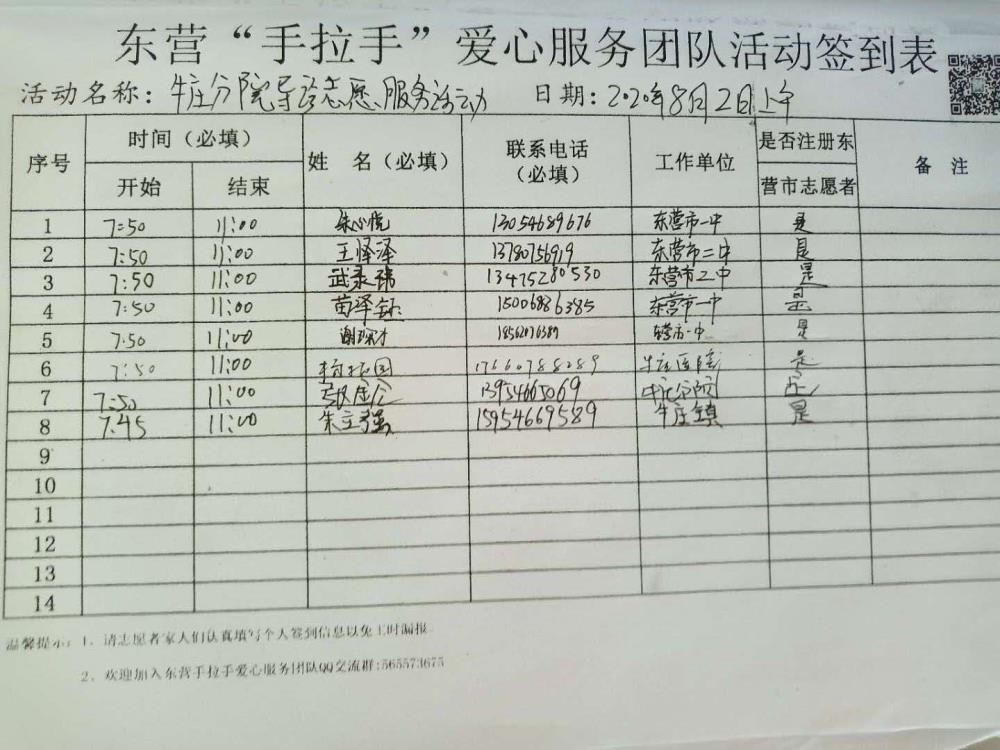 东营“手拉手”爱心服务团队活动签到表
活动名称：牛庄分院导诊志愿服务活动 日期：2020年8月2日上午
序号 时间（必填） 姓 名（必填） 联系电话（必填） 工作单位 是否注册东营市志愿者 备 注
开始 结束
1 7:50 11:00 13054689676 东营市一中 是
2 7:50 11:00 王怿泽 13780756919 东营市二中 是
3 7:50 11:00 武录瑞 13475280530 东营市二中 是
4 7:50 11:00 苗泽钰 15006886385 东营市一中 是
5 7:50 11:00 谢琛才 18562076389 东营市一中 是
6 7:50 11:00 17660788289 牛庄医院 是
7 7:50 11:00 13954665069 牛庄分院 是
8 7:45 11:00 朱立强 15954669589 牛庄镇 是
9
10
11
12
13
14
温馨提示：1、请志愿者家人们认真填写个人签到信息以免工时漏报
2、欢迎加入东营手拉手爱心服务团队QQ交流群:565573675